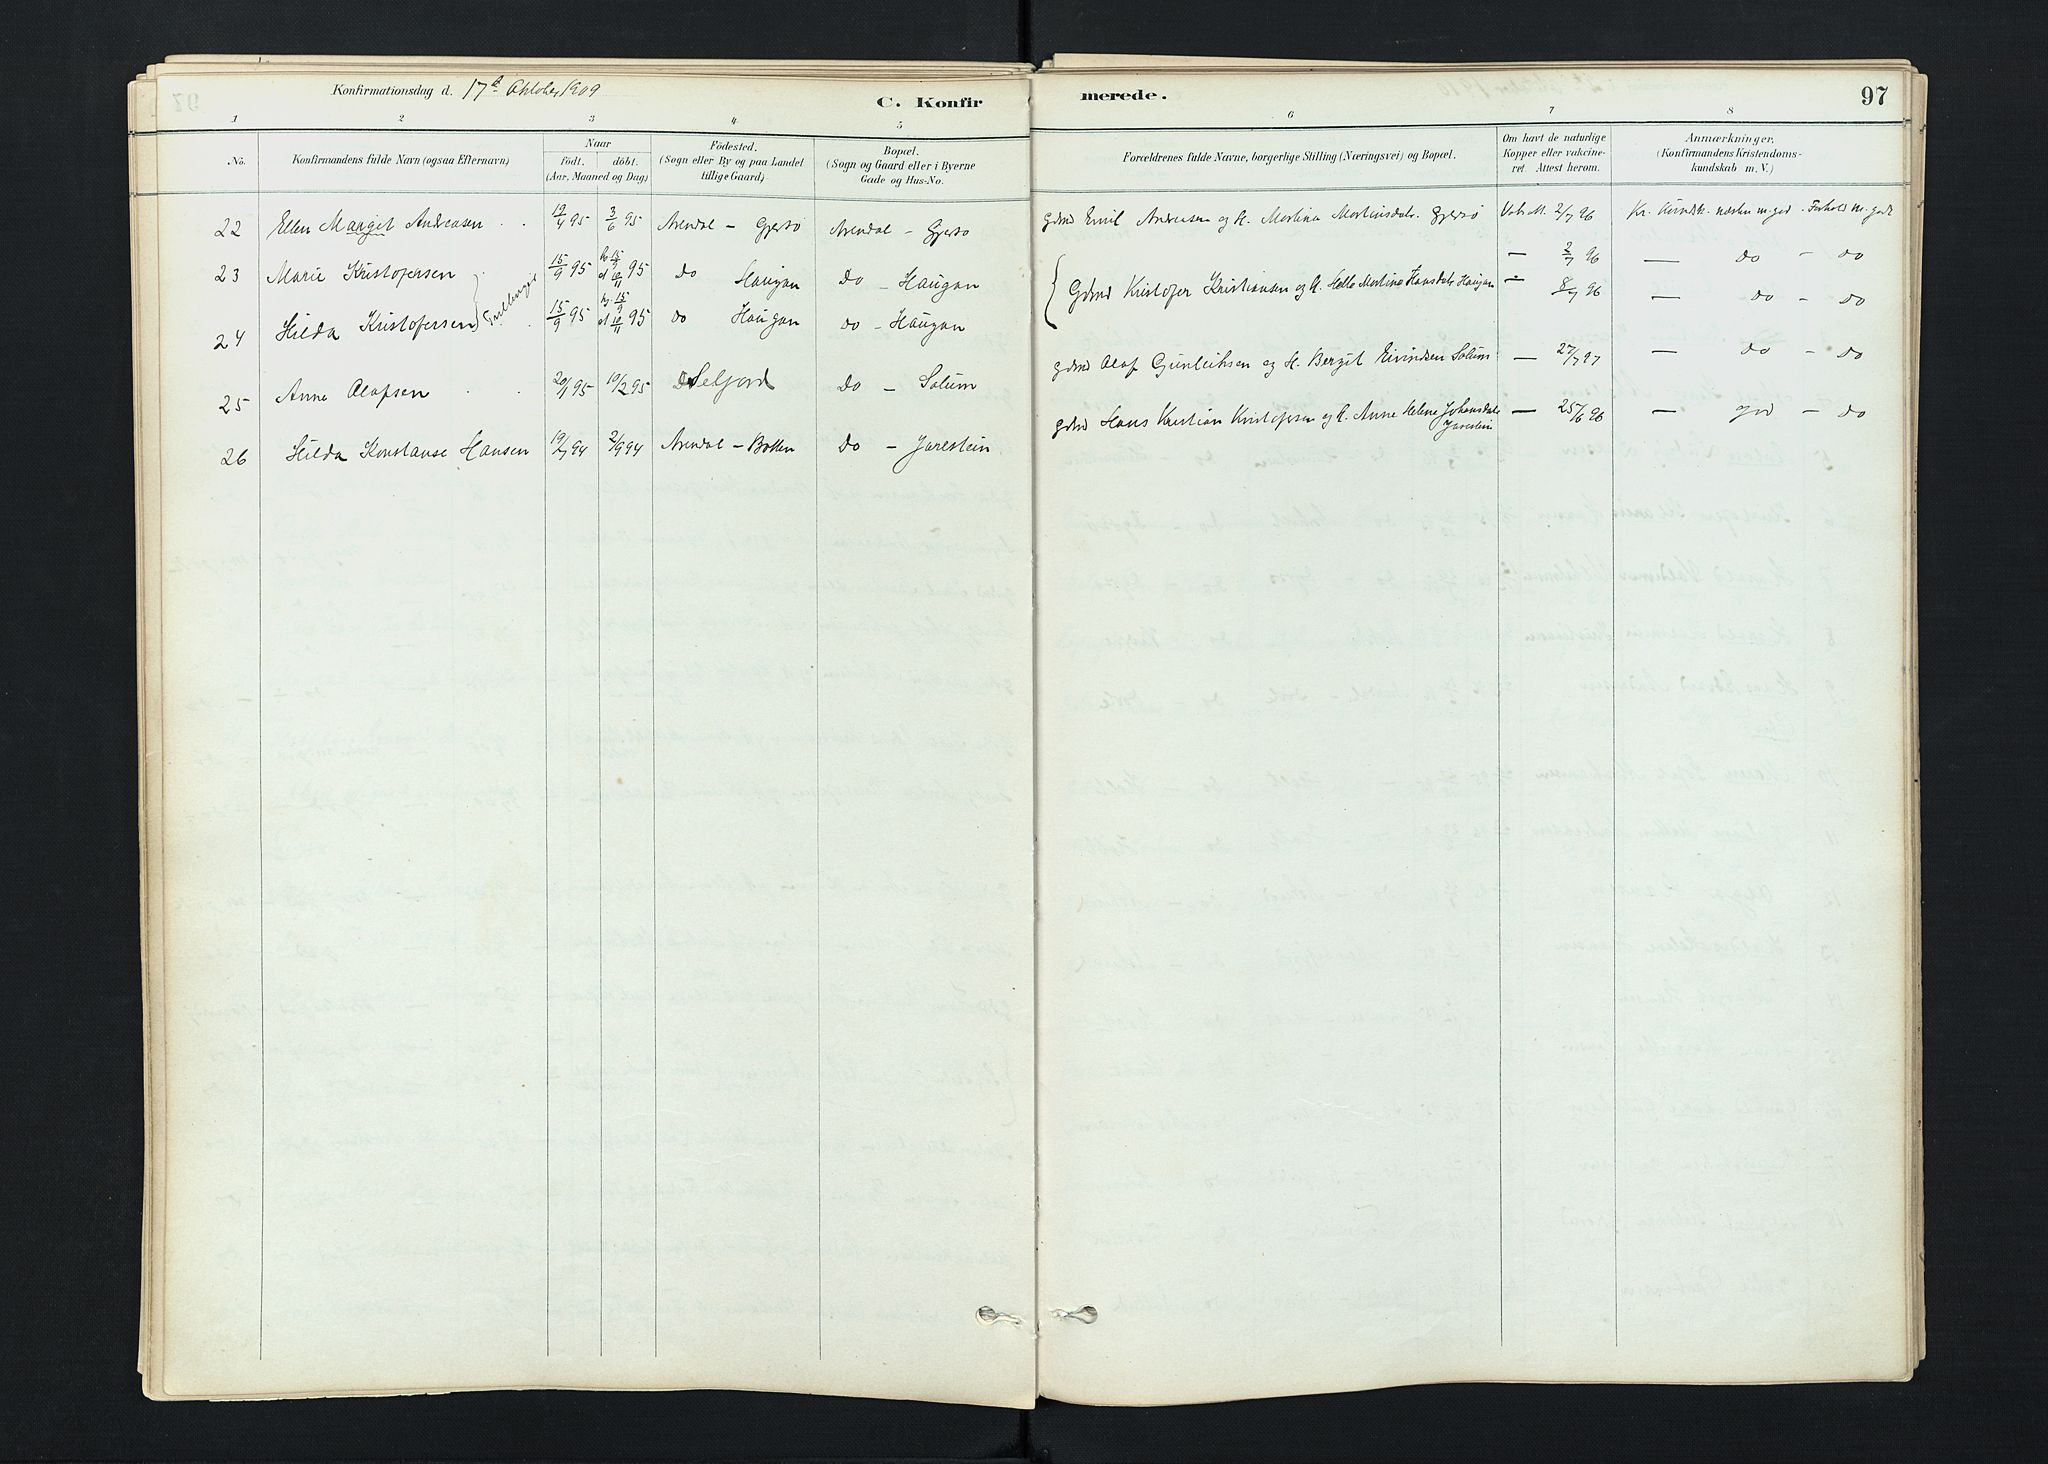 Konfirmationsdag d. 17de Oktober 1909
C. Konfirmerede.
97
1 2 3 4 5 6 7 8
No.
Konfirmandens fulde Navn (ogsaa Efternavn)
Naar
født. døbt.
(Aar, Maaned og Dag)
Fødested.
(Sogn eller By og paa Landet
tillige Gaard)
Bopæl.
(Sogn og Gaard eller i Byerne
Gade og Hus-No.
Forældrenes fulde Navne, borgerlige Stilling (Næringsvei) og Bopæl.
Om havt de naturlige
Kopper eller vakcine-
ret. Attest herom.
Anmærkninger,
(Konfirmandens Kristendoms-
kundskab m. V.)
22 Ellen Margit Andreasen 19/4 95 3/6 95 Arendal – Gjersø Arendal – Gjersø Gdmd Emil Andreasen og H. Martine Martinsdatr. Gjersø 2/7 96 Kr. Kundsk. næsten m. god. Forhold m. godt
23 Marie Kristofersen 15/9 95 15/9 d 10/11 95 Do Haugan Do – Haugan — 2/7 96 — Do – Do
Tvillinger
Gdmd Kristofer Kristiansen og H. Helle Martine Hansdatr Haugan
24 Hilda Kristofersen 15/9 95 15/9 d 10/11 95 Do Haugan Do – Haugan — 8/7 96 — Do – Do
25 Anne Olafsen 20/1 95 10/2 95 Seljord Do – Solum gdmd Olaf Gunleiksen og H. Bergit Eivindsen Solum — 27/7 97 — Do – Do
26 Hilda Konstanse Hansen 19/7 94 2/9 94 Arendal – Botten Do – Jarestein gdmd Hans Kristian Kristofersen og H. Anne Helene Johansdatr Jarestein — 25/6 96 — god – Do